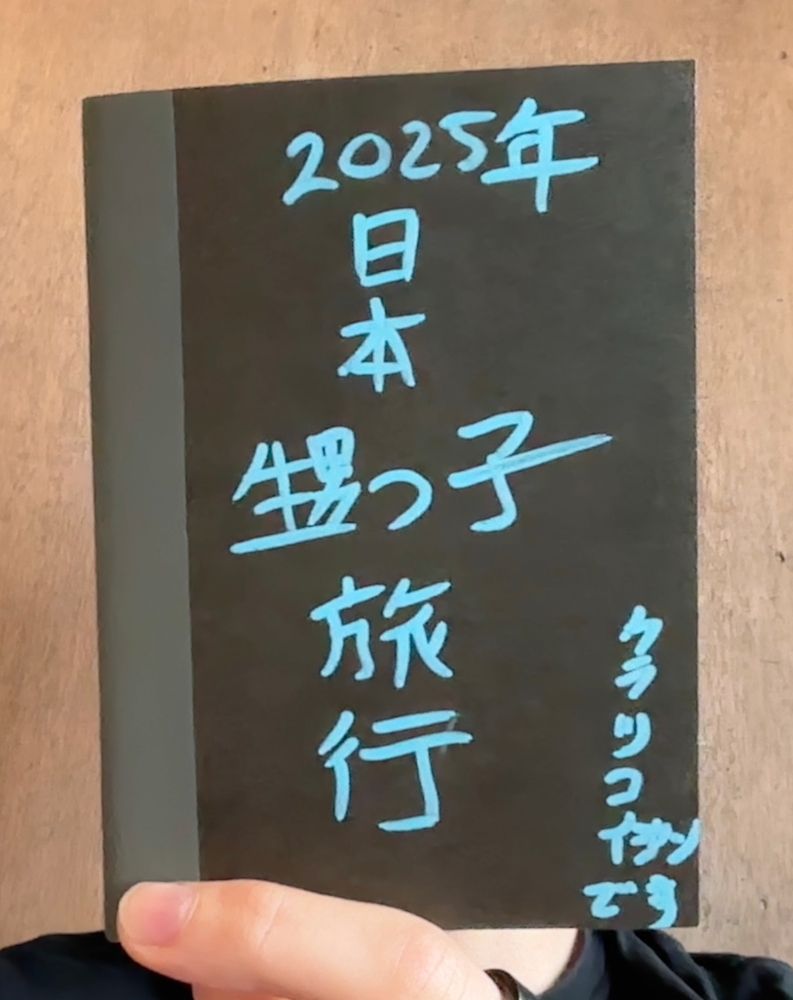 2025年
日本
甥っ子
旅行
クラリコ
です